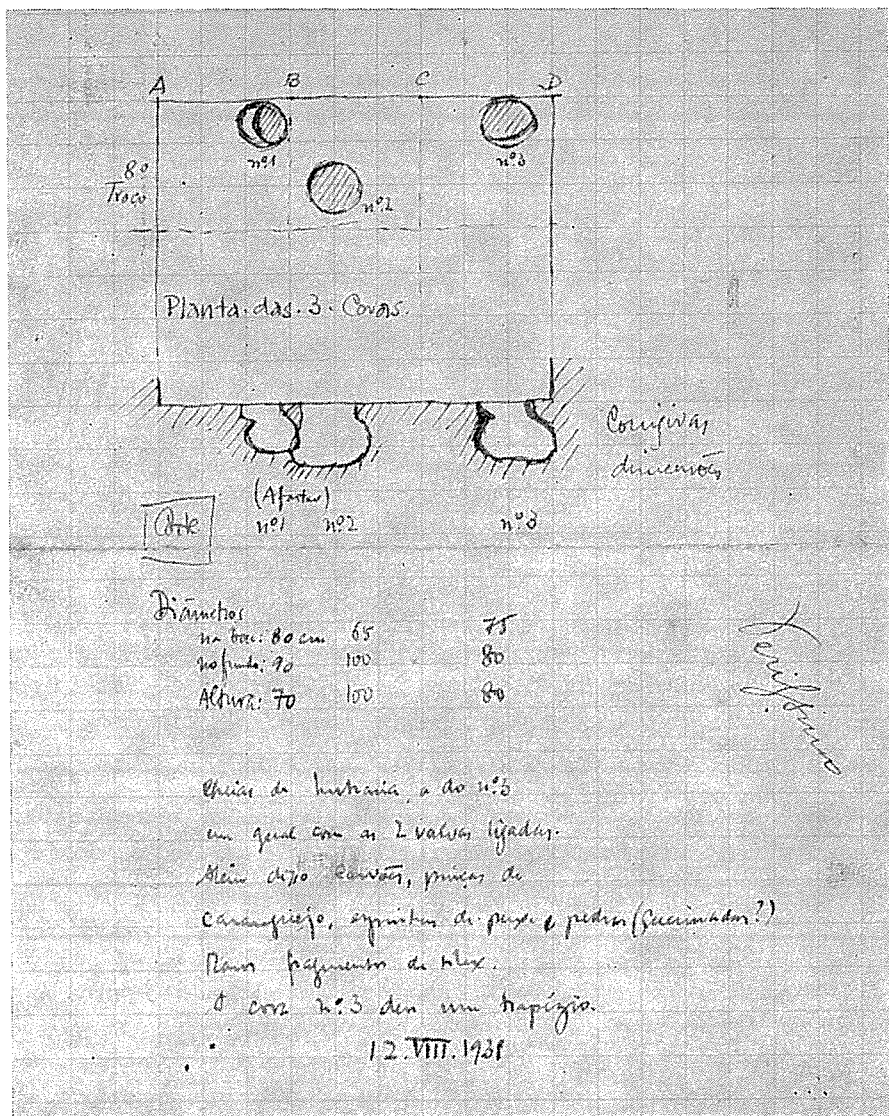 A B C D
nº1
nº3
8º
Troço
nº2
Planta das 3 Covas.
Corrigir as
dimensões
(Afastar)
Corte
nº1 nº2 nº3
Diâmetros
na boca: 80 cm 65 75
no fundo: 90 100 80
Altura: 70 100 80
Cheias de lutraria, a do nº3
em geral com as 2 valvas ligadas.
Além disso carvões, pinças de
caranguejo, espinhas de peixe e pedras (queimadas?)
Raros fragmentos de silex.
A cova nº3 deu um trapézio.
12.VIII.1938